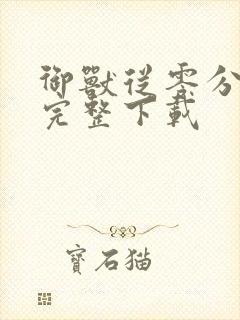 御獸從零分
完整下載
寶石貓